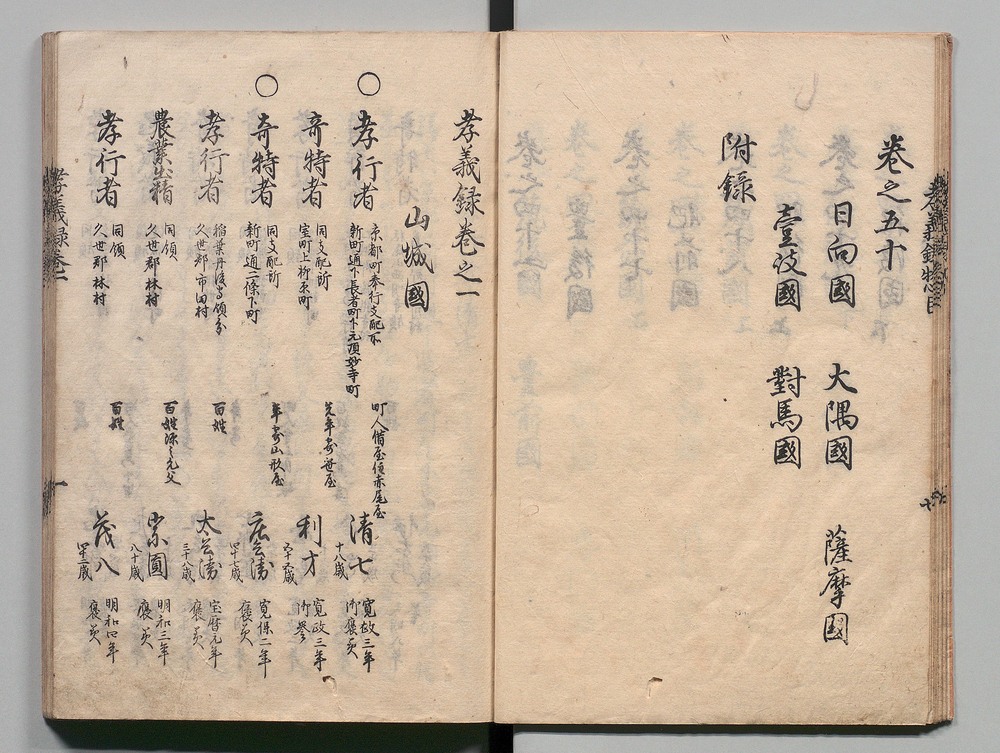 卷之五十
日向國 大隅國 薩摩國
壹岐國 對馬國
附錄
孝義録卷之一
山城國
孝行者 京都町奉行支配所 新町通下長者町下元頂妙寺町 町人借屋住赤尾屋 清七 十八歳 寛政三年 御褒美
奇特者 同支配所 室町上柳原町 利才 寛政三年
奇特者 同支配所 新町通二條下町 年寄山形屋 庄兵衛 四十七歳 寛保二年 褒美
孝行者 稲葉丹後守領分 久世郡市田村 百姓 太兵衛 三十八歳 宝暦元年 褒美
農業出精 同領 久世郡林村 百姓源之允父 宗圓 八十歳 明和三年 褒美
孝行者 同領 久世郡林村 百姓 茂八 明和四年 褒美